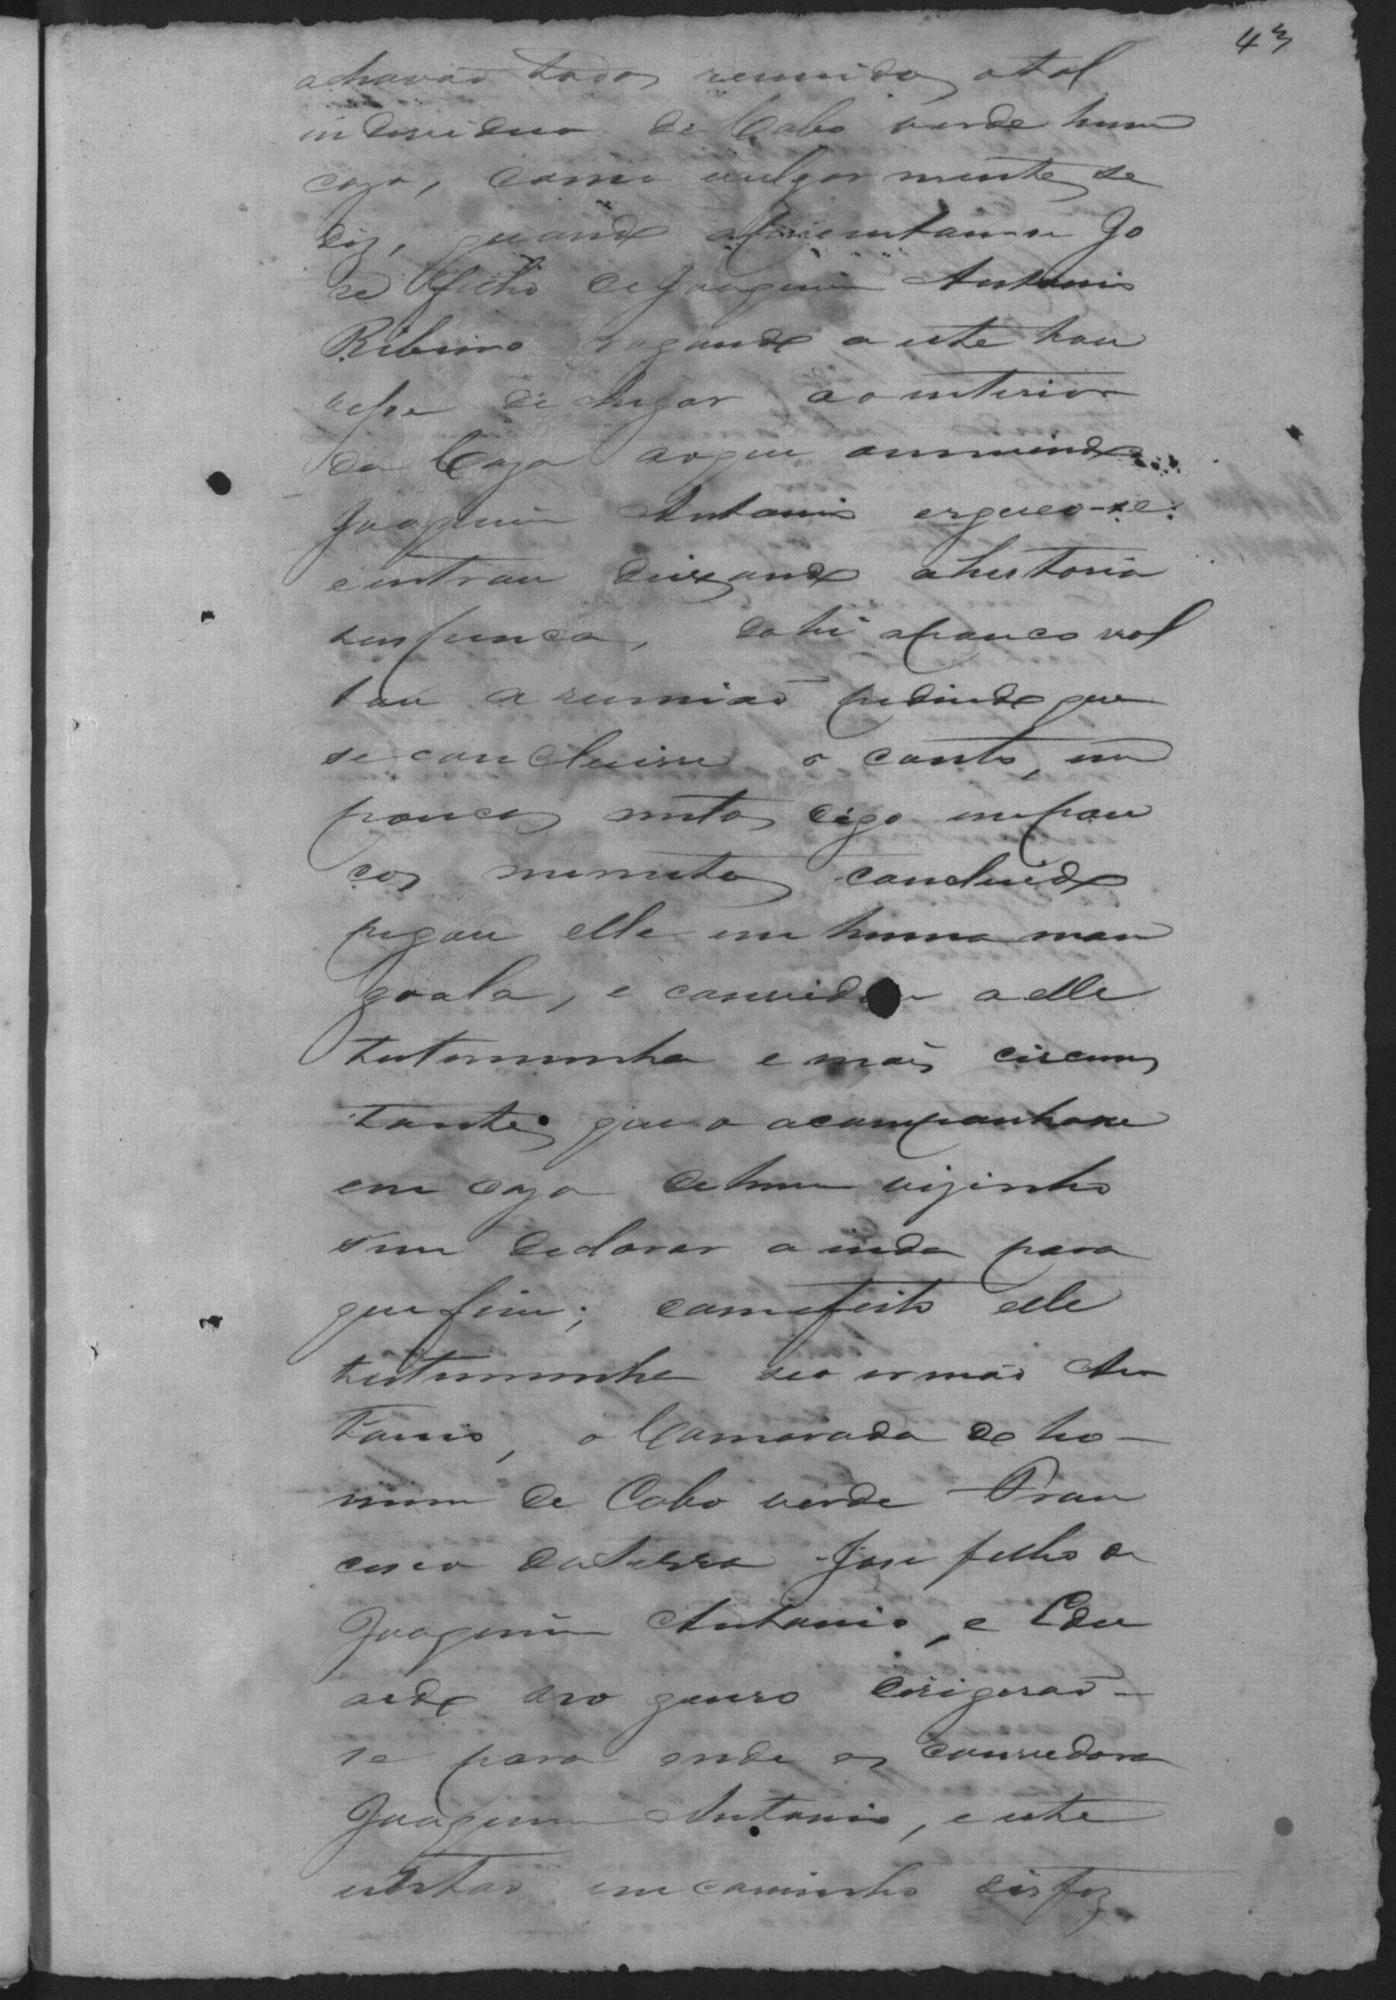 43
achavão todos reunidos o tal
individuo de Cabo verde hum
cazo, como vulgarmente se
diz, quando apresentou-se Jo
sé filho de Joaquim Antonio
Ribeiro rogando a este hou
vesse de chegar ao interior
da Caza ao que annuindo
Joaquim Antonio ergueo-se
entrou deixando a historia
suspença, dahi a pouco vol
tou a reunião pedindo que
se concluisse o conto, em
poucos mitos digo em pou
cos minutos concluido
pegou elle em huma man
goala, e convidou a elle
testemunha e mais circuns
tantes que o acompanhasse
em caza de hum vizinho
sem declarar ainda para
que fim; com efeito elle
testemunha seo irmão An
tonio, o Camarada do ho-
mem de Cabo verde Fran
cisco da Terra José filho de
Joaquim Antonio, e Edu
ardo seo genro dirigirão-
se para onde os convidara
Joaquim Antonio, e este
então em caminho disse